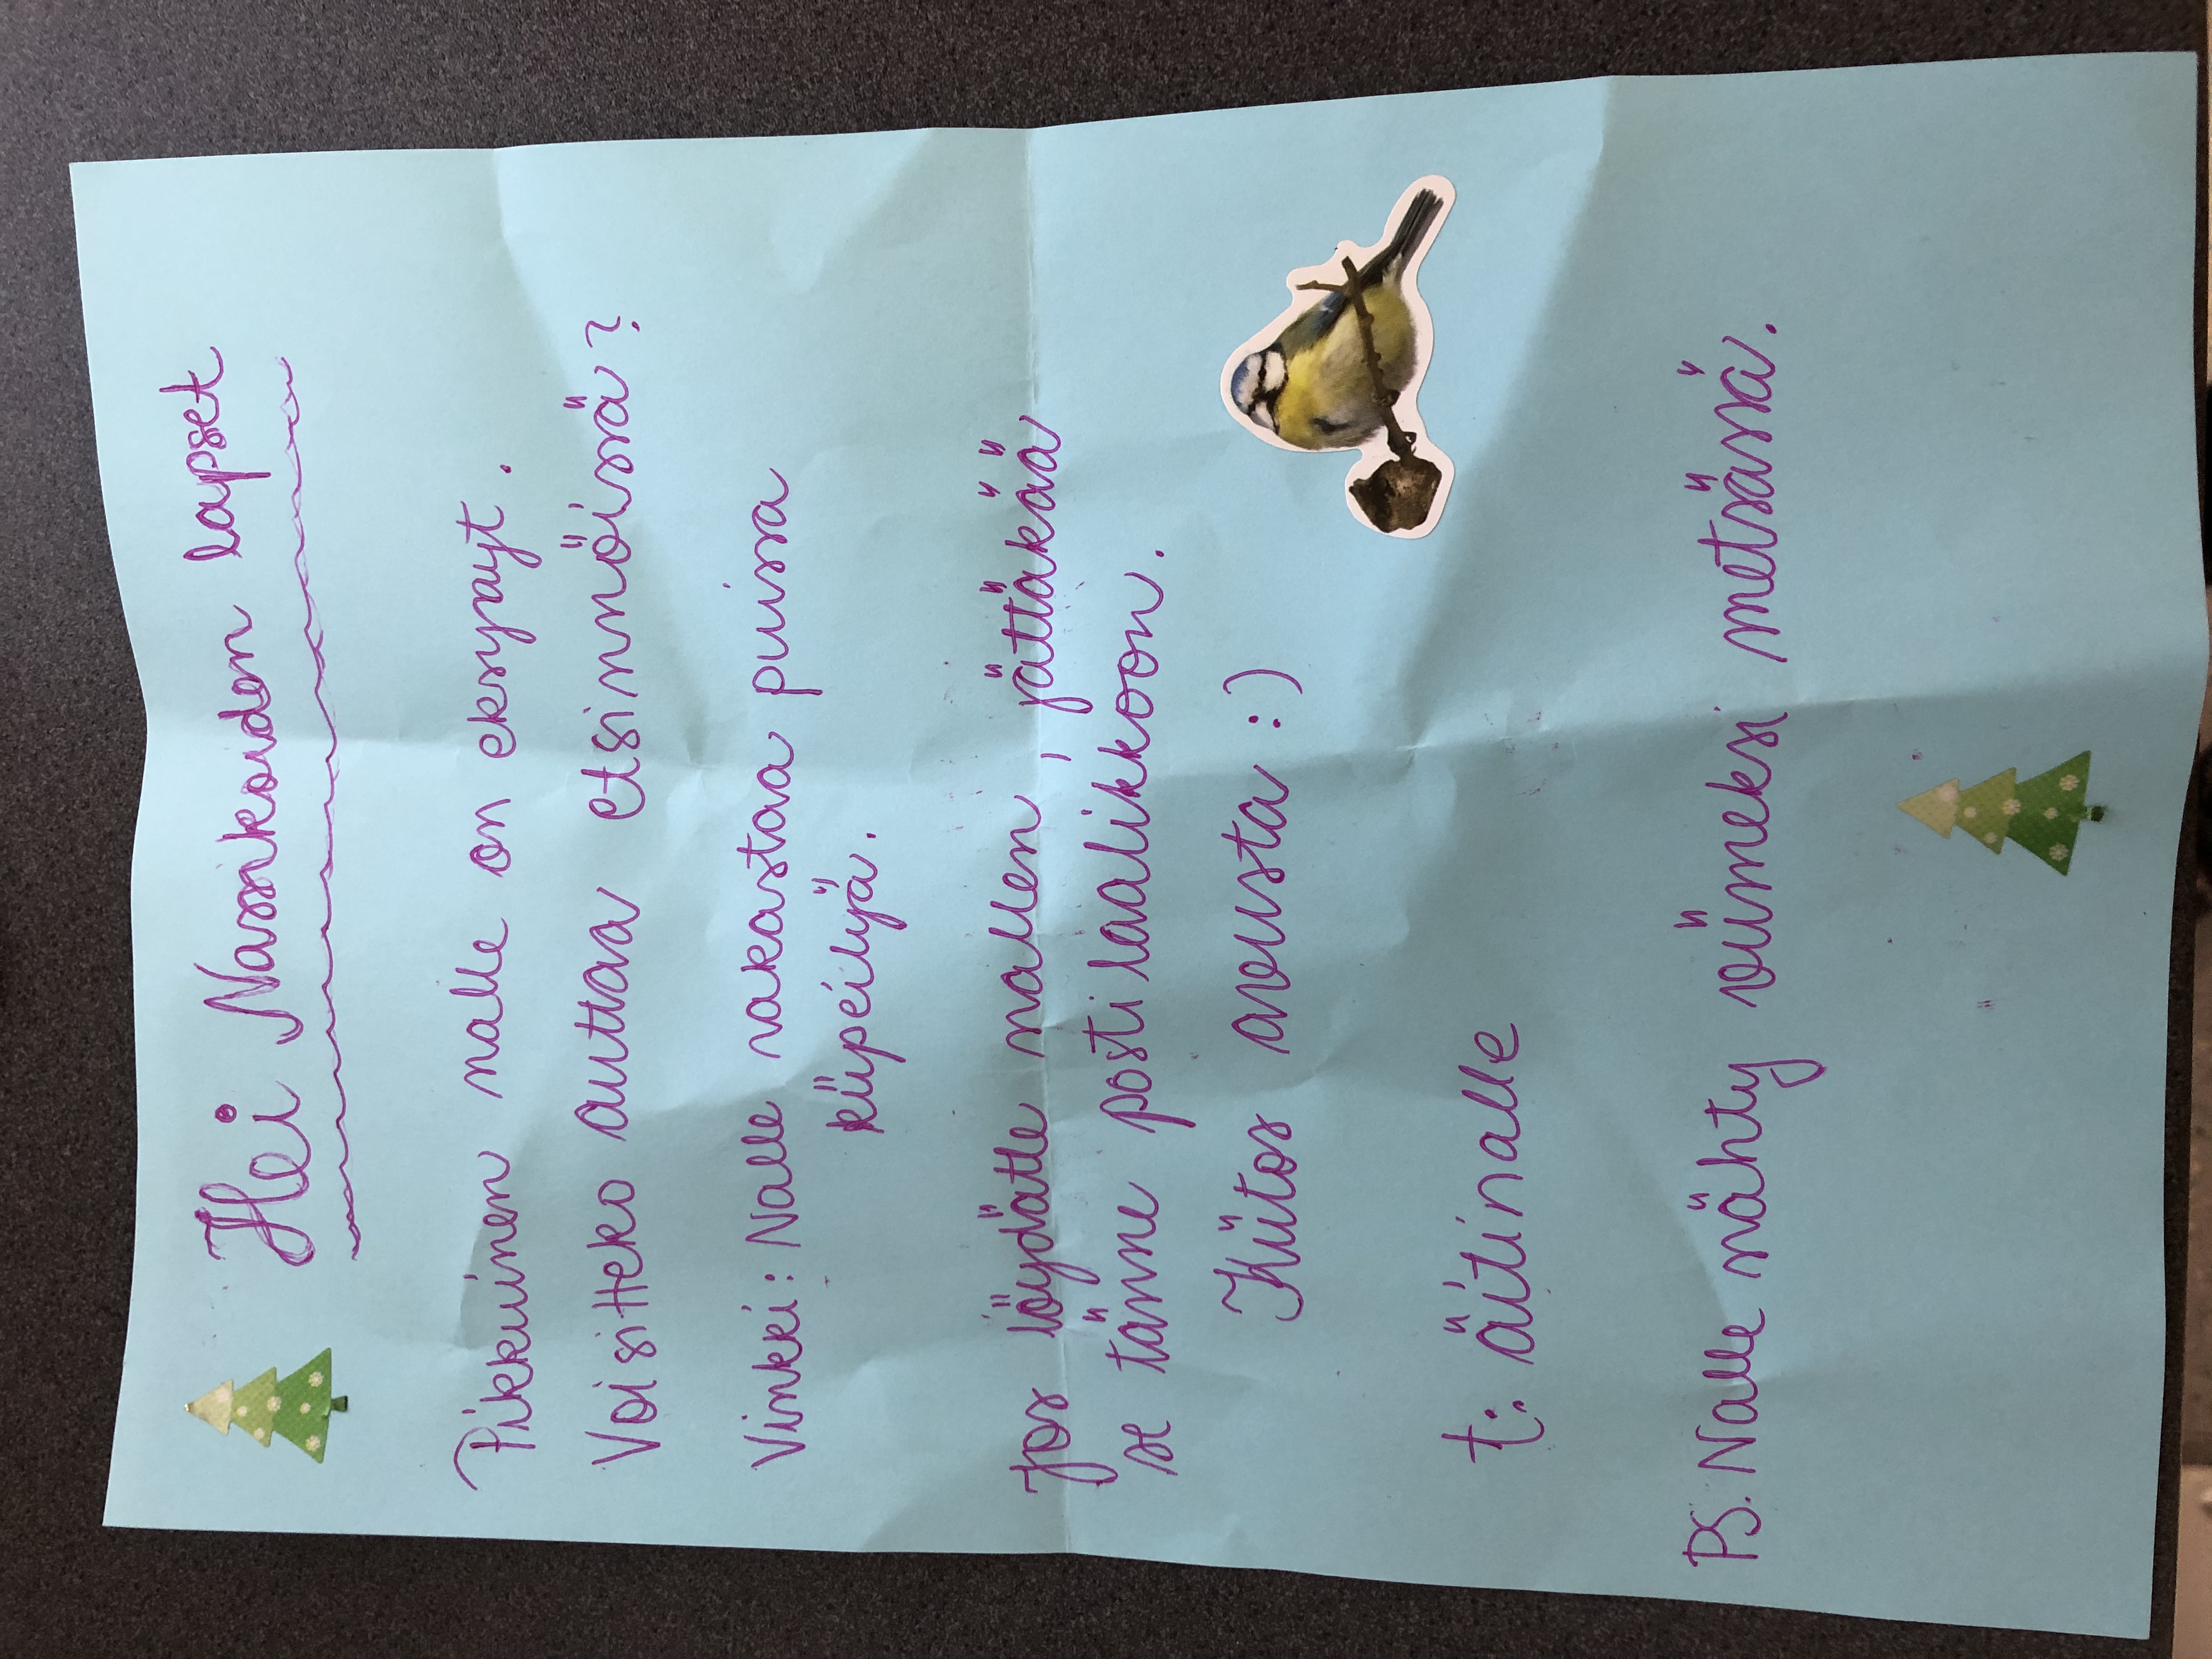 Hei Naisinkoiden lapset
Pikkuinen nalle on eksynyt.
Voisitteko auttaa etsinnöissä?
Vinkki: Nalle rakastaa puissa
kiipeilyä.
Jos löydätte nallen, jättäkää
se tänne postilaatikkoon.
Kiitos avusta :)
t: äitinalle
PS. Nalle nähty viimeksi metsässä.